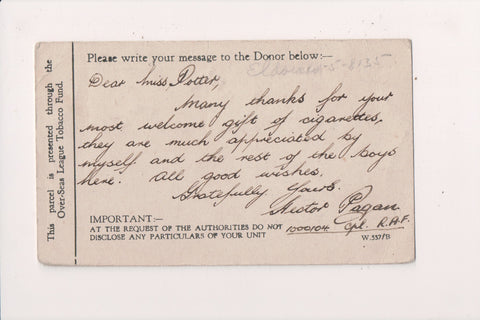 This parcel is presented through the
Over-Seas League Tobacco Fund.
Please write your message to the Donor below:—
Dear Miss Potter,
Many thanks for your
most welcome gift of cigarettes,
they are much appreciated by
myself and the rest of the boys
here. All good wishes,
Gratefully Yours.
Hector Pagan
1000104 Cpl. R.A.F.
IMPORTANT:—
AT THE REQUEST OF THE AUTHORITIES DO NOT
DISCLOSE ANY PARTICULARS OF YOUR UNIT
W.557/B